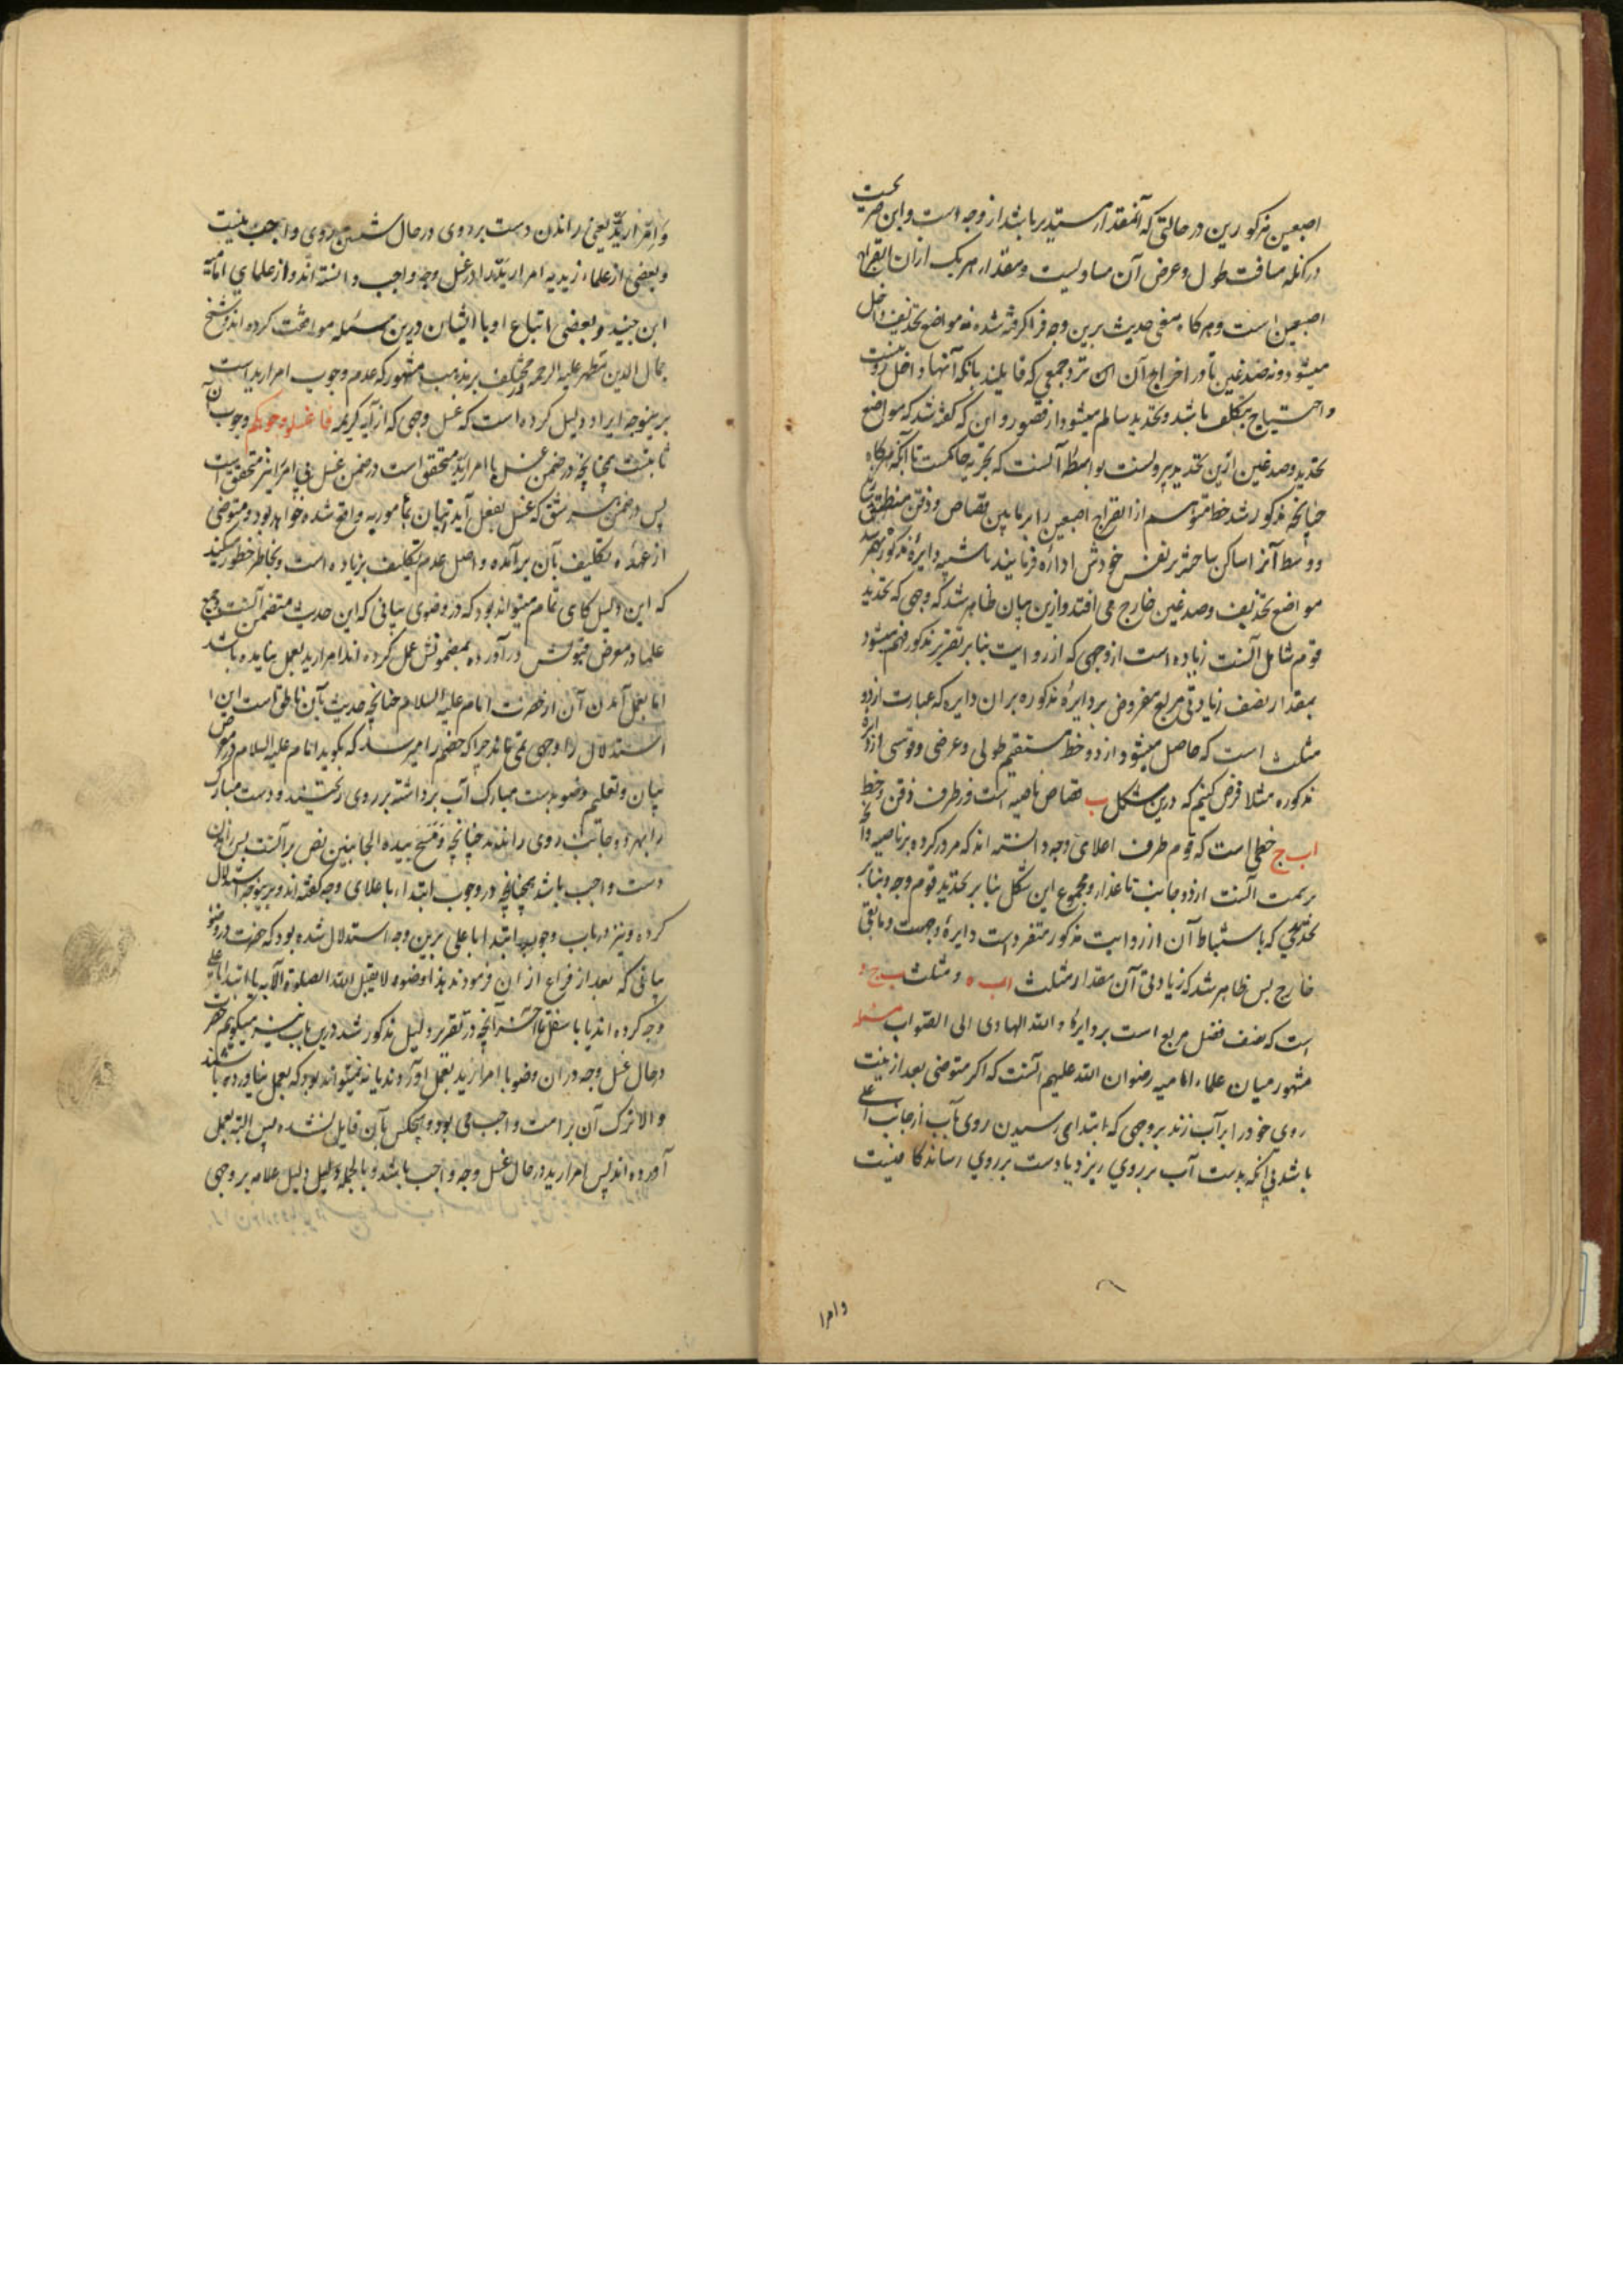 اصبعین مذکورین در حالتی که آنمقدار مستدیر باشد از وجه است و این صریحست
در آنکه مسافت طول و عرض آن مساویست و مقدار هر یک ازان انفراج
اصبعین است و هرگاه معنی حدیث برین وجه فرا گرفته شده نه مواضع تحذیف داخل
میشود و نه صدغین تا در اخراج آن نزد جمعی که قایلند بانکه آنها داخل رو نیست
و احتیاج بتکلف باشد و تحدید سالم میشود از قصور و این که گفته شد که مواضع
تحذیف و صدغین ازین تحدید بیرونست بواسطه آنست که تجربه حاکمست تا آنکه هرگاه
چنانچه مذکور شد خط متوهم از انفراج اصبعین را بر مابین قصاص و ذقن منطبق
و وسط آنرا ساکن ساخته بر نفس خودش اداره فرمایند تا شبیه دایره مذکور بهم رسد
مواضع تحذیف و صدغین خارج می افتد و ازین بیان ظاهر شد که وجهی که تحدید
قوم شامل آنست زیاده است از وجهی که از روایت بنا بر تقریر مذکور فهم میشود
بمقدار نصف زیادتی مربع مفروض بر دایره مذکوره بران دایره که عبارت از دو
مثلث است که حاصل میشود از دو خط مستقیم طولی و عرضی و قوسی از دایره
مذکوره مثلا فرض کنیم که درین شکل ب قصاص ناصیه است و طرف ذقن و خط
اب ج خطی است که قوم طرف اعلای وجه دانسته اند که مرور کرده بر ناصیه و آنچه
بر سمت آنست از دو جانب تا عذار و مجموع این شکل بنا بر تحدید قوم وجه و بنا بر
تحدیدی که باستنباط آن از روایت مذکور متفرد است دایره وجهست و مابقی
خارج پس ظاهر شد که زیادتی آن مقدار مثلث اب ه و مثلث ب ج و
است که نصف فضل مربع است بر دایره و الله الهادی الی الصواب مسئله
مشهور میان علماء امامیه رضوان الله علیهم آنست که اکر متوضی بعد از نیت
روی خود را بر آب زند بر وجهی که ابتدای رسیدن روی بآب از جانب اعلی
باشد بی آنکه بدست آب بر روی ریزد یا دست بر روی رساند کافیست
وامرا
و امرار ید یعنی راندن دست بر روی در حال شستن روی واجب نیست
و بعضی از علماء زیدیه امرار ید را در غسل وجه واجب دانسته اند و از علمای امامیه
ابن جنید و بعضی اتباع او با ایشان درین مسئله موافقت کرده اند و شیخ
جمال الدین مطهر علیه الرحمه در مختلف بر مذهب مشهور که عدم وجوب امرار ید است
برینوجه ایراد دلیل کرده است که غسل وجهی که از آیه کریمه فاغسلوا وجوهکم وجوب آن
ثابتست همچنانچه در ضمن غسل با امرار ید متحقق است در ضمن غسل بی امرار نیز متحقق است
پس در ضمن هر شق که غسل بفعل آید اتیان بمامور به واقع شده خواهد بود و متوضی
از عهده تکلیف بآن بر آمده و اصل عدم تکلیف بزیاده است و بخاطر خطور میکند
که این دلیل گاهی تمام میتواند بود که در وضوی بیانی که این حدیث متضمن آنست و جمیع
علما در معرض قبولش در آورده بمضمونش عمل کرده اند امرار ید بعمل نیامده باشد
اما بعمل آمدن آن از حضرت امام علیه السلام چنانچه حدیث بآن ناطق است این
استدلال را وجهی نمی ماند چرا که خصم را میرسد که بگوید امام علیه السلام در معرض
بیان و تعلیم وضو بدست مبارک آب برداشته بر روی ریختند و دست مبارک
را بهر دو جانب روی راندند چنانچه و مسح بیده الجانبین نص بر آنست پس راندن
دست واجب باشد همچنانچه در وجوب ابتداء باعلای وجه گفته اند و برینوجه استدلال
کرده و نیز در باب وجوب ابتدا باعلی برین وجه استدلال شده بود که حضرت در وضوء
بیانی که بعد از فراغ از این فرمودند هذا وضوء لا یقبل الله الصلوة الا به یا ابتدا باعلی
وجه کرده اند یا باسفل تا آخر آنچه در تقریر دلیل مذکور شد درین باب نیز میگویم حضرت
در حال غسل وجه در ان وضو یا امرار ید بعمل آوردند یا نه نمیتواند بود که بعمل نیاورده باشند
و الا ترک آن بر امت واجب می بود و هیچکس بآن قایل نشده پس البته بعمل
آورده اند پس امرار ید در حال غسل وجه واجب باشد و بالجمله دلیل علامه بر وجهی